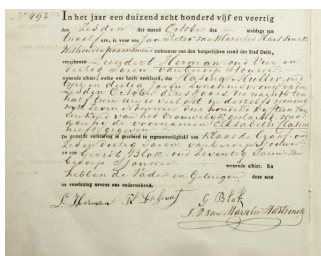 No 493
In het jaar een duizend acht honderd vijf en veertig
den Zesden der maand October des middags ten
twaalf ure, is voor ons Jan Pieter van Marselis Hartsinck
Wethouder ambtenaar van den burgerlijken stand der Stad Delft,
verschenen Leendert Herman oud Vier en
dertig Jaren van beroep Sjouwer
woonende alhier, welke ons heeft verklaard, dat
en dertig Jaren zonder beroep op den
Zesden October dezes Jaars des nachts ten
half drie ure is verlost in deszelfs woning
van een kind van het vrouwelijk geslacht, waar
aan de voornamen Elisabeth
heeft gegeven
De gemelde verklaring is geschied in tegenwoordigheid van Klaas de Graaf oud
Zes en veertig Jaren van beroep Sjouwer
en van Gerrit Blok oud Zeventig Jaren van
beroep Sjouwer woonende alhier. En
hebben de Vader en Getuigen deze acte
na voorlezing nevens ons onderteekend.
L Herman K de Graaf G Blok
J. P. van Marselis Hartsinck